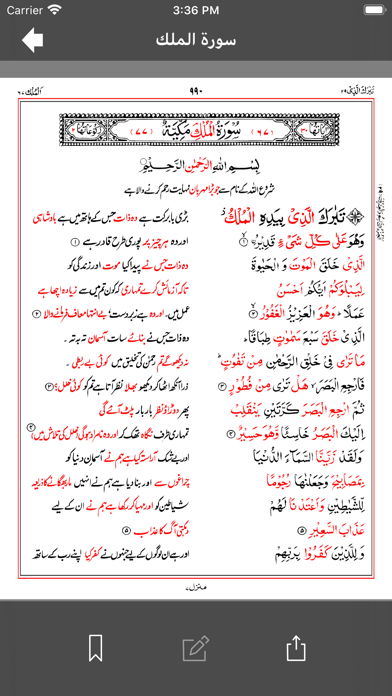 Carrier 3:36 PM
سورة الملك
تَبٰرَكَ الَّذِىْ ٢٩
٩٩٠
اَلْمُلْك ٦٧
سُوْرَةُ الْمُلْكِ مَكِّيَّةٌ
(٦٧)
(٧٧)
بِسْمِ اللهِ الرَّحْمٰنِ الرَّحِيْمِ
شروع اللہ کے نام سے جو بڑا مہربان نہایت رحم کرنے والا ہے
تَبٰرَكَ الَّذِىْ بِيَدِهِ الْمُلْكُ
وَهُوَ عَلٰى كُلِّ شَىْءٍ قَدِيْرُ ۙ ١
الَّذِىْ خَلَقَ الْمَوْتَ وَ الْحَيٰوةَ
لِيَبْلُوَكُمْ اَيُّكُمْ اَحْسَنُ
عَمَلًا ؕ وَهُوَ الْعَزِيْزُ الْغَفُوْرُ ۙ ٢
الَّذِىْ خَلَقَ سَبْعَ سَمٰوٰتٍ طِبَاقًا ؕ
مَا تَرٰى فِىْ خَلْقِ الرَّحْمٰنِ مِنْ تَفٰوُتٍ ؕ
فَارْجِعِ الْبَصَرَ ۙ هَلْ تَرٰى مِنْ فُطُوْرٍ ٣
ثُمَّ ارْجِعِ الْبَصَرَ كَرَّتَيْنِ يَنْقَلِبْ
اِلَيْكَ الْبَصَرُ خَاسِئًا وَّهُوَ حَسِيْرٌ ٤
وَلَقَدْ زَيَّنَّا السَّمَآءَ الدُّنْيَا
بِمَصَابِيْحَ وَجَعَلْنٰهَا رُجُوْمًا
لِّلشَّيٰطِيْنِ وَاَعْتَدْنَا لَهُمْ
عَذَابَ السَّعِيْرِ ٥
وَ لِلَّذِيْنَ كَفَرُوْا بِرَبِّهِمْ
بڑی بابرکت ہے وہ ذات جس کے ہاتھ میں ہے بادشاہی
اور وہ ہر چیز پر پوری طرح قادر ہے ١
وہ ذات جس نے پیدا کیا موت اور زندگی کو
تاکہ آزمائش کرے تمہاری کہ کون تم میں سے زیادہ اچھا ہے
عمل میں۔ اور وہ ہے زبردست بے انتہا معاف فرمانے والا ٢
وہ ذات جس نے بنائے سات آسمان تہ بہ تہ۔
نہ دیکھو گے تم رحمٰن کی تخلیق میں کوئی بے ربطی۔
ذرا آنکھ اٹھا کر دیکھو بھلا نظر آتا ہے تم کو کوئی خلل؟ ٣
پھر دوڑاؤ نظر بار بار پلٹ آئے گی
تمہاری طرف نگاہ تھک کر اور وہ نامراد ہوگی خلل کی تلاش میں ٤
اور بے شک آراستہ کیا ہے ہم نے آسمانِ دنیا کو
چراغوں سے اور بنا دیا ہے ہم نے انہیں مار بھگانے کا ذریعہ
شیاطین کو اور مہیا کر رکھا ہے ہم نے ان کے لیے
دہکتی آگ کا عذاب ٥
اور ہے ان لوگوں کے لیے جنہوں نے کفر کیا اپنے رب کے ساتھ
منزل ٧